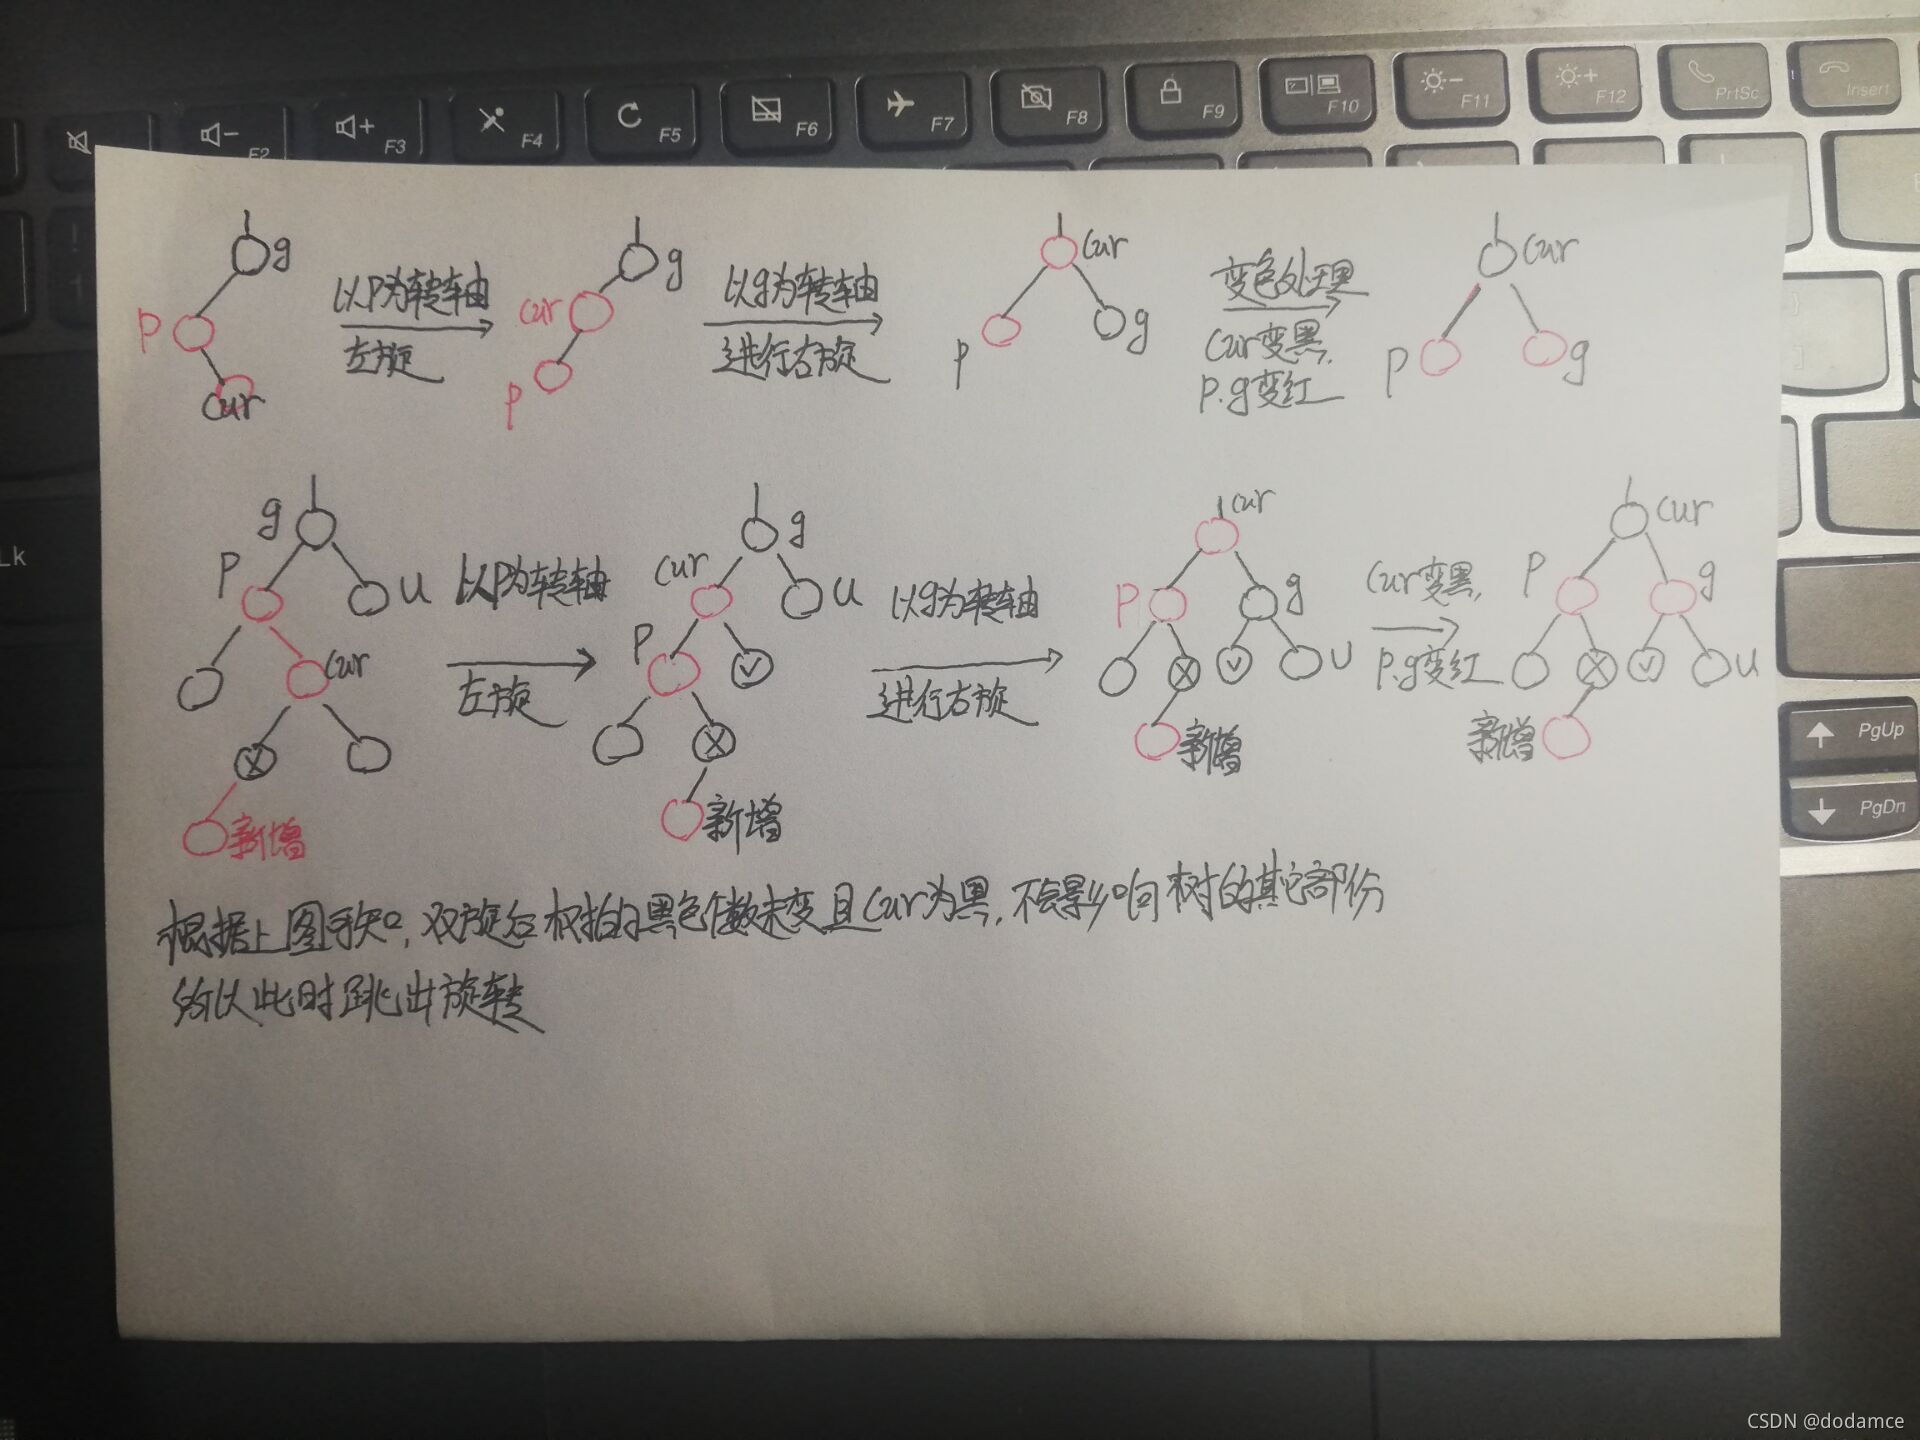 F2
F3
F4
F5
F6
F7
F8
F9
F10
F11
F12
PrtSc
Insert
Lk
PgUp
PgDn
g
P
cur
以P为转轴
左旋
g
cur
P
以g为转轴
进行右旋
cur
P
g
变色处理
cur变黑,
P.g变红
cur
P
g
g
P
u
cur
X
新增
以P为转轴
左旋
g
cur
u
P
✓
X
新增
以g为转轴
进行右旋
cur
P
g
X
✓
u
新增
cur变黑,
P.g变红
cur
P
g
X
✓
u
新增
根据上图可知,双旋后权拍的黑色个数未变且cur为黑,不会影响树的其它部份
所以此时跳出旋转
CSDN @dodamce